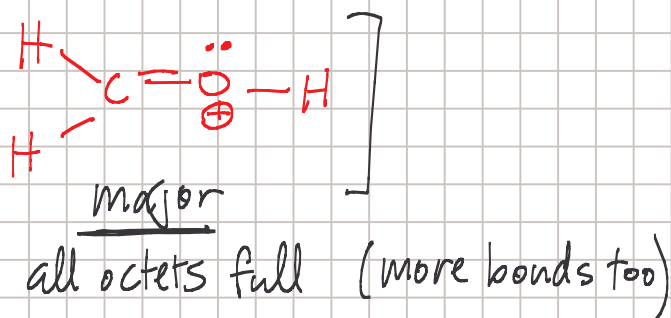 H
C = O — H
⊕
H
major
all octets full (more bonds too)